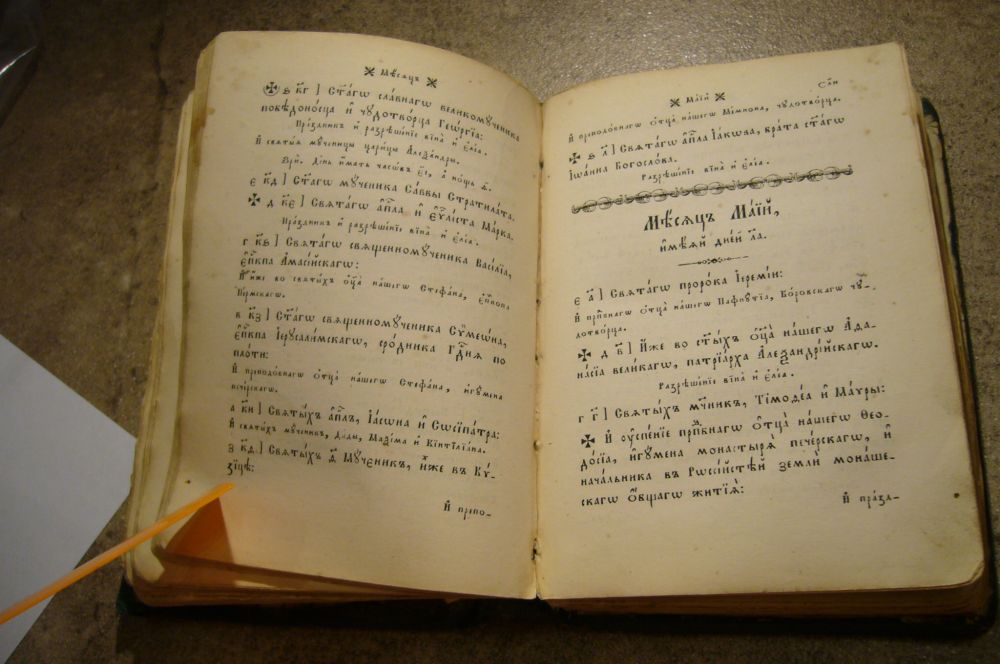 Мѣсѧцъ
ѕ҃ к҃г ] Ст҃а́гѡ сла́внагѡ великомꙋ́ченика
побѣдоно́сца и҆ чꙋдотво́рца Геѡ́ргїа:
Пра́здникъ и҆ разрѣше́нїе вїна̀ и҆ є҆ле́а.
И҆ свѧты́ѧ мꙋ́ченицы цари́цы Алеѯа́ндры.
є҃ к҃д ] Ст҃а́гѡ мꙋ́ченика Са́ввы Стратила́та.
д҃ к҃є ] Свѧта́гѡ а҆п҃ла и҆ є҆ѵ҃лі́ста Ма́рка.
Пра́здникъ и҆ разрѣше́нїе вїна̀ и҆ є҆ле́а.
г҃ к҃ѕ ] Свѧта́гѡ свѧщенномꙋ́ченика Васі́лїа,
є҆п҃кпа Амасі́йскагѡ:
И҆́же во свѧты́хъ ѻ҆ц҃а̀ на́шегѡ Стефа́на, є҆п҃копа
Пе́рмскагѡ.
в҃ к҃з ] Ст҃а́гѡ свѧщенномꙋ́ченика Сѷмеѡ́на,
є҆п҃кпа І҆ерꙋсали́мскагѡ, сро́дника Гд҃нѧ по
пло́ти:
И҆ преподо́бнагѡ ѻ҆тц҃а̀ на́шегѡ Стефа́на, и҆гꙋ́мена
пече́рскагѡ.
а҃ к҃и ] Свѧты́хъ а҆п҃лъ, І҆а́сѡна и҆ Сѡсїпа́тра:
И҆ свѧты́хъ мꙋ́ченикъ, Да́ды, Маѯі́ма и҆ Кѷнтїлїа́на.
з҃ к҃ѳ ] Свѧты́хъ ѳ҃ Мꙋ́ченикъ, и҆̀же въ Кѷ-
зі́цѣ:
И҆ препо-
Ма́їй
И҆ преподо́бнагѡ ѻ҆тц҃а̀ на́шегѡ чꙋдотво́рца.
ѕ҃ л҃ ] Свѧта́гѡ а҆п҃ла І҆а́кѡва, бра́та ст҃а́гѡ
І҆ѡа́нна Богосло́ва.
Разрѣше́нїе вїна̀ и҆ є҆ле́а.
Мѣ́сѧцъ Ма́їй,
и҆мѣ́ѧй дне́й л҃а.
є҃ а҃ ] Свѧта́гѡ проро́ка І҆еремі́и:
И҆ прпⷣбнагѡ ѻ҆тц҃а̀ на́шегѡ Пафнꙋ́тїа, Бо́ровскагѡ чꙋ-
дотво́рца.
д҃ в҃ ] И҆́же во ст҃ы́хъ ѻ҆ц҃а̀ на́шегѡ Аѳа-
на́сїа вели́кагѡ, патрїа́рха Алеѯандрі́йскагѡ.
Разрѣше́нїе вїна̀ и҆ є҆ле́а.
г҃ г҃ ] Свѧты́хъ мч҃никъ, Тїмоѳе́а и҆ Ма́ѵры:
И҆ ᲂу҆спе́нїе прпⷣбнагѡ ѻ҆тц҃а̀ на́шегѡ Ѳео-
до́сїа, и҆гꙋ́мена монастырѧ̀ пече́рскагѡ, и҆
нача́льника въ Рѡссі́йстѣй землѝ мона́ше-
скагѡ ѻ҆́бщагѡ житїѧ̀:
И҆ пра́зд-